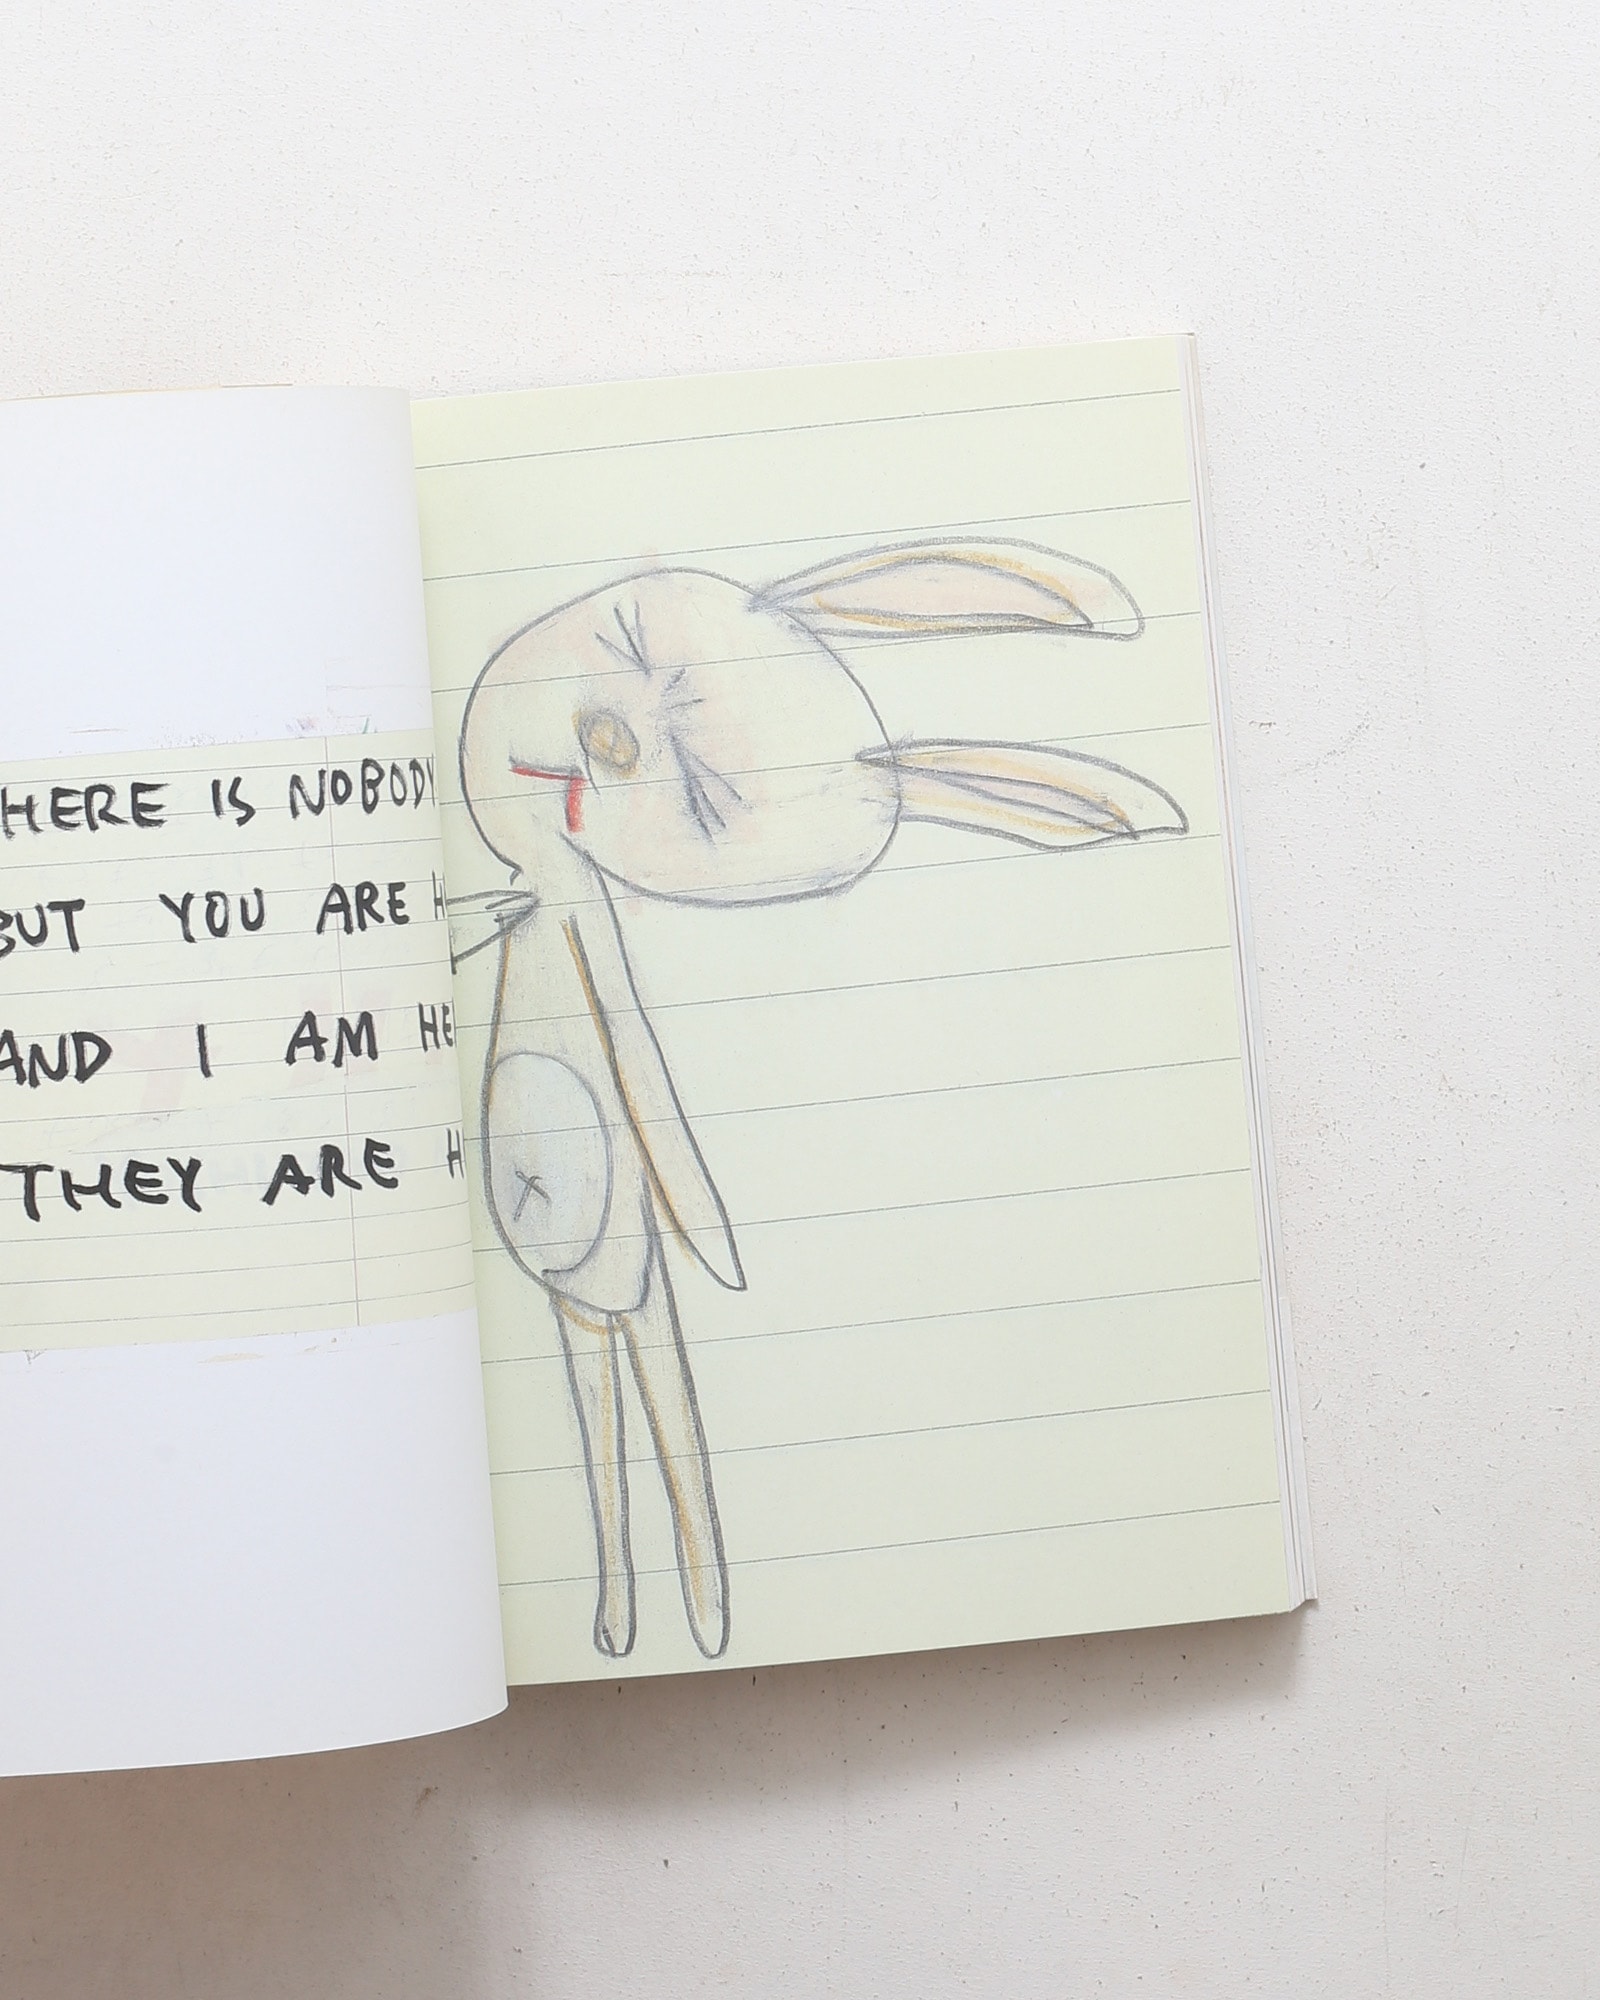 HERE IS NOBODY
BUT YOU ARE H
AND I AM HE
THEY ARE H